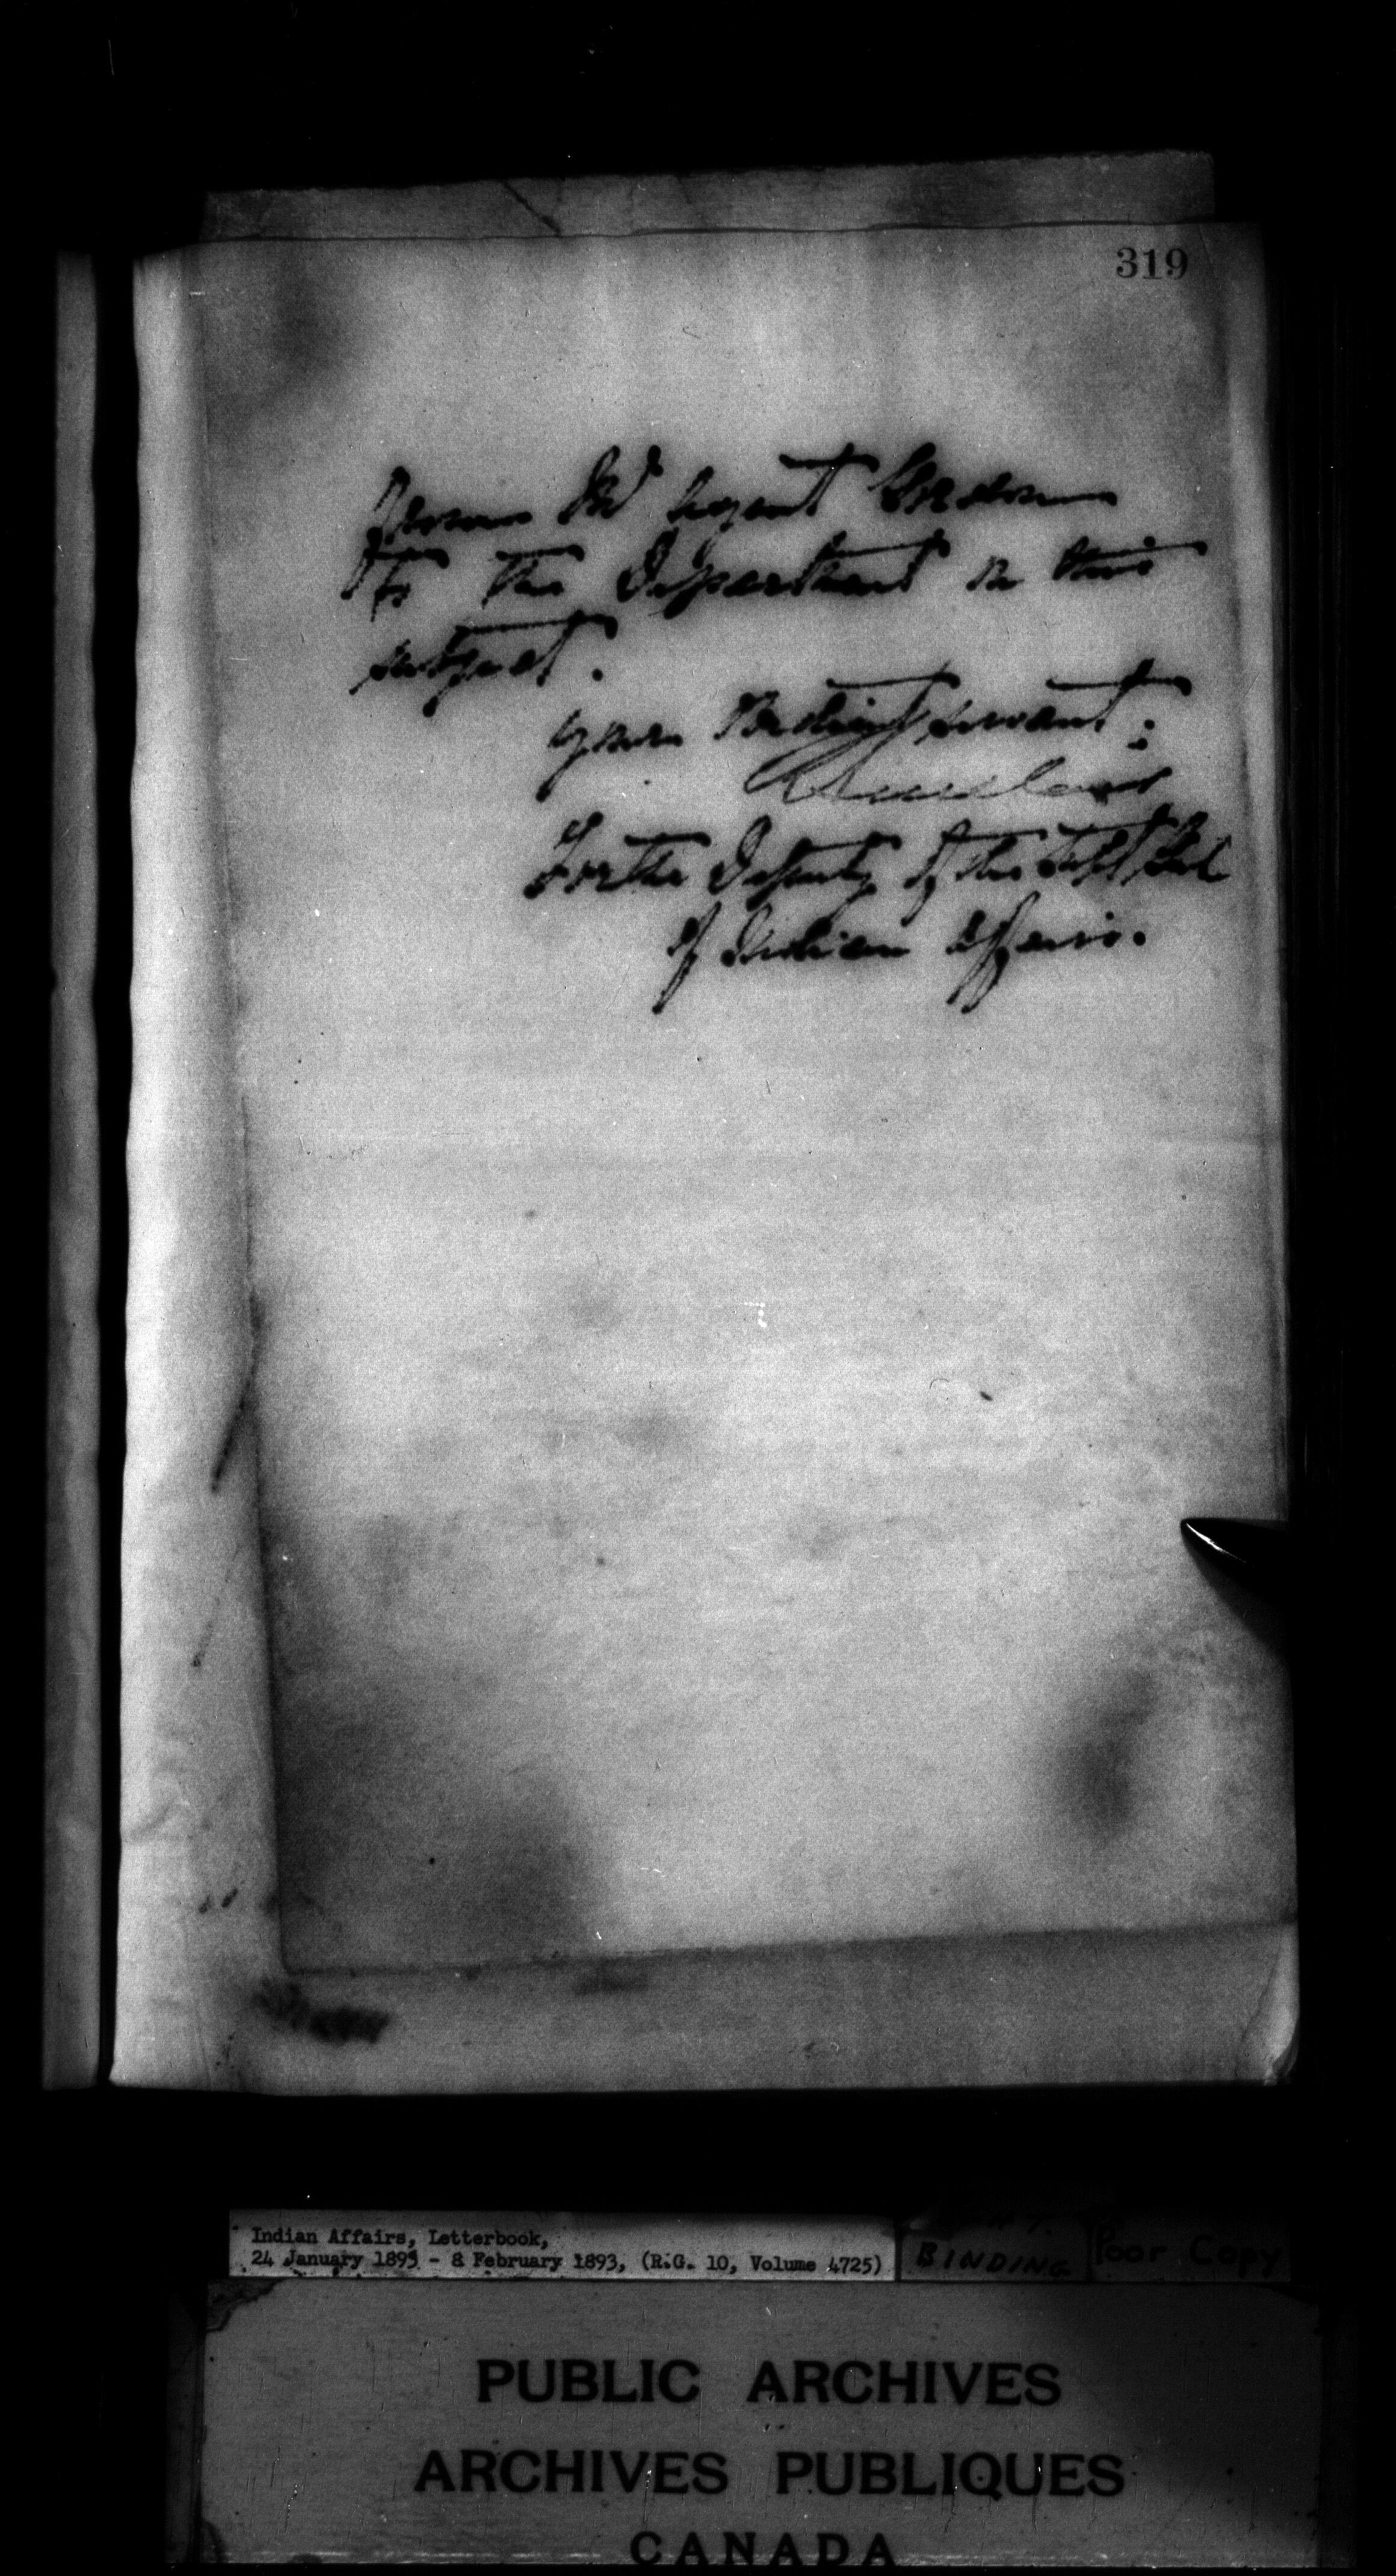 319
from Mr Agent
to the Department on this
subject.
Your obedient servant,
For the Deputy of the Supt Genl
of Indian Affairs.
Indian Affairs, Letterbook,
24 January 1893 - 8 February 1893, (R.G. 10, Volume 4725)
BINDING
Poor Copy
PUBLIC ARCHIVES
ARCHIVES PUBLIQUES
CANADA